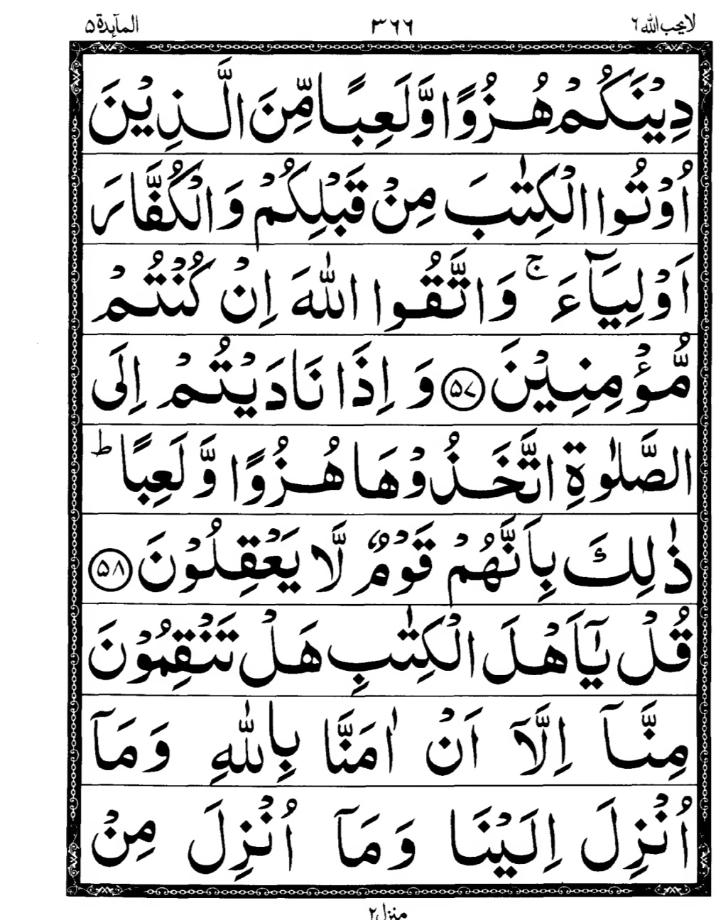 لایحب الله ٦ ٣٦٦ المآئدة ۵
دِیْنَكُمْ هُزُوًا وَّلَعِبًا مِّنَ الَّذِیْنَ
اُوْتُوا الْكِتٰبَ مِنْ قَبْلِكُمْ وَالْكُفَّارَ
اَوْلِیَآءَ ۚ وَاتَّقُوا اللهَ اِنْ كُنْتُمْ
مُّؤْمِنِیْنَ ﴿۵۷﴾ وَ اِذَا نَادَیْتُمْ اِلَی
الصَّلٰوةِ اتَّخَذُوْهَا هُزُوًا وَّلَعِبًا ؕ
ذٰلِكَ بِاَنَّهُمْ قَوْمٌ لَّا یَعْقِلُوْنَ ﴿۵۸﴾
قُلْ یٰۤاَهْلَ الْكِتٰبِ هَلْ تَنْقِمُوْنَ
مِنَّاۤ اِلَّاۤ اَنْ اٰمَنَّا بِاللّٰهِ وَمَاۤ
اُنْزِلَ اِلَیْنَا وَمَاۤ اُنْزِلَ مِنْ
منزل ۲